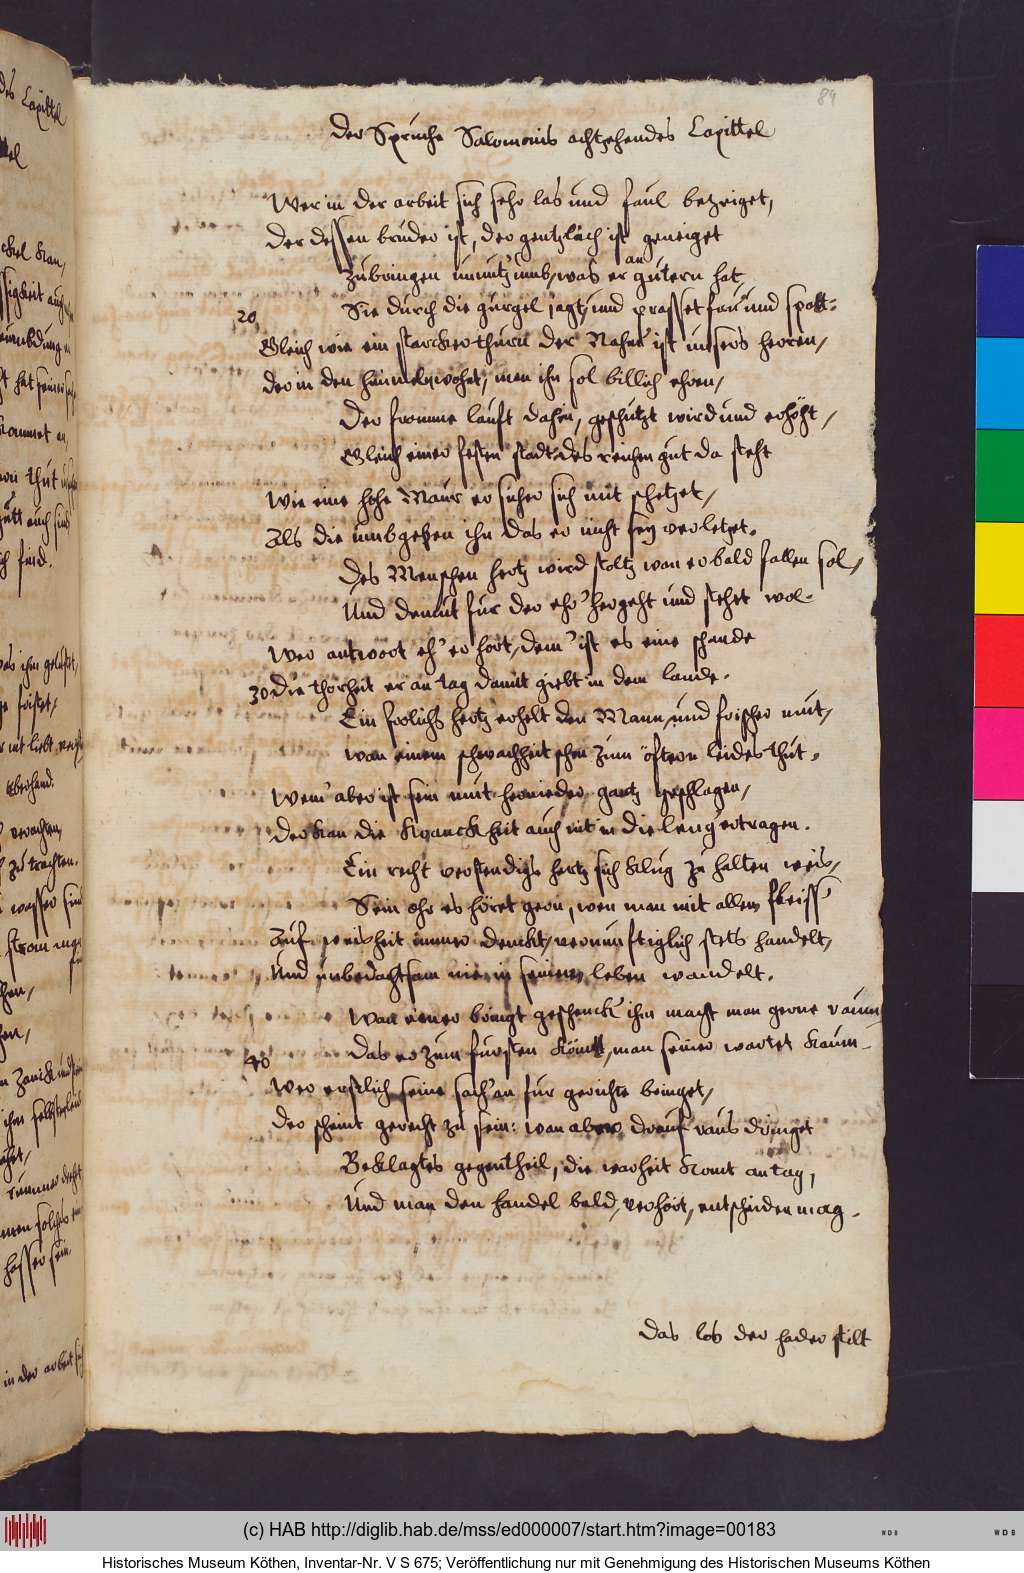 89
Der Spruche Salomonis achtzehendes Capittel
Wer in der arbeit sich sehr las und faul bezeiget,
Der dessen bruder ist, der gentzlich ist geneiget
zubringen unnutz umb, was er an gutern hat
Sie durch die gurgel jagt, und prasset frau und spatt.
20.
Gleich wie ein starcker thurn der Nahm' ist unsers herren,
der in den himmeln wohnt, man ihn sol billich ehren,
Der fromme lauft dahin, geschutzt wird und erhöht,
Gleich einer festen stadt des reichen gut da steht
Wie eine hohe Maur er sicher sich mit schetzet,
Als die umbgeben ihn das er nicht sey verletzet.
Des Menschen hertz wird stoltz wan er bald fallen sol,
Und demut fur der ehr' hergeht und stehet wol.
Wer antwort eh' er hört, dem' ist es eine schande
30 Die thorheit er an tag damit giebt in dem lande.
Ein frölichs hertz erhelt den Mann, und frischer mut,
wan einem schwachheit schon zum öftern leides thut.
Wem' aber ist sein mut hernieder gantz geschlagen,
Der kan die Kranckheit auch nit in die leng ertragen.
Ein recht verstendigs hertz sich klug zu halten weis,
Sein ohr es höret gern, wen man mit allem fleiss
Auf weisheit immer denckt, vernunftiglich stets handelt,
Und unbedachtsam nie in seinem leben wandelt.
Wan einer bringt geschenck' ihm macht man gerne raum,
40
Das er zum fursten kömt, man seiner wartet kaum.
Wer erstlich seine sach' an fur gerichte bringet,
Der scheint gerecht zu sein: wan aber drauf raus dringet
Beklagtes gegentheil, die warheit komt an tag,
Und man den handel bald, verhört, entscheiden mag.
Das los der hader stilt
(c) HAB http://diglib.hab.de/mss/ed000007/start.htm?image=00183
WDB
WDB
Historisches Museum Köthen, Inventar-Nr. V S 675; Veröffentlichung nur mit Genehmigung des Historischen Museums Köthen